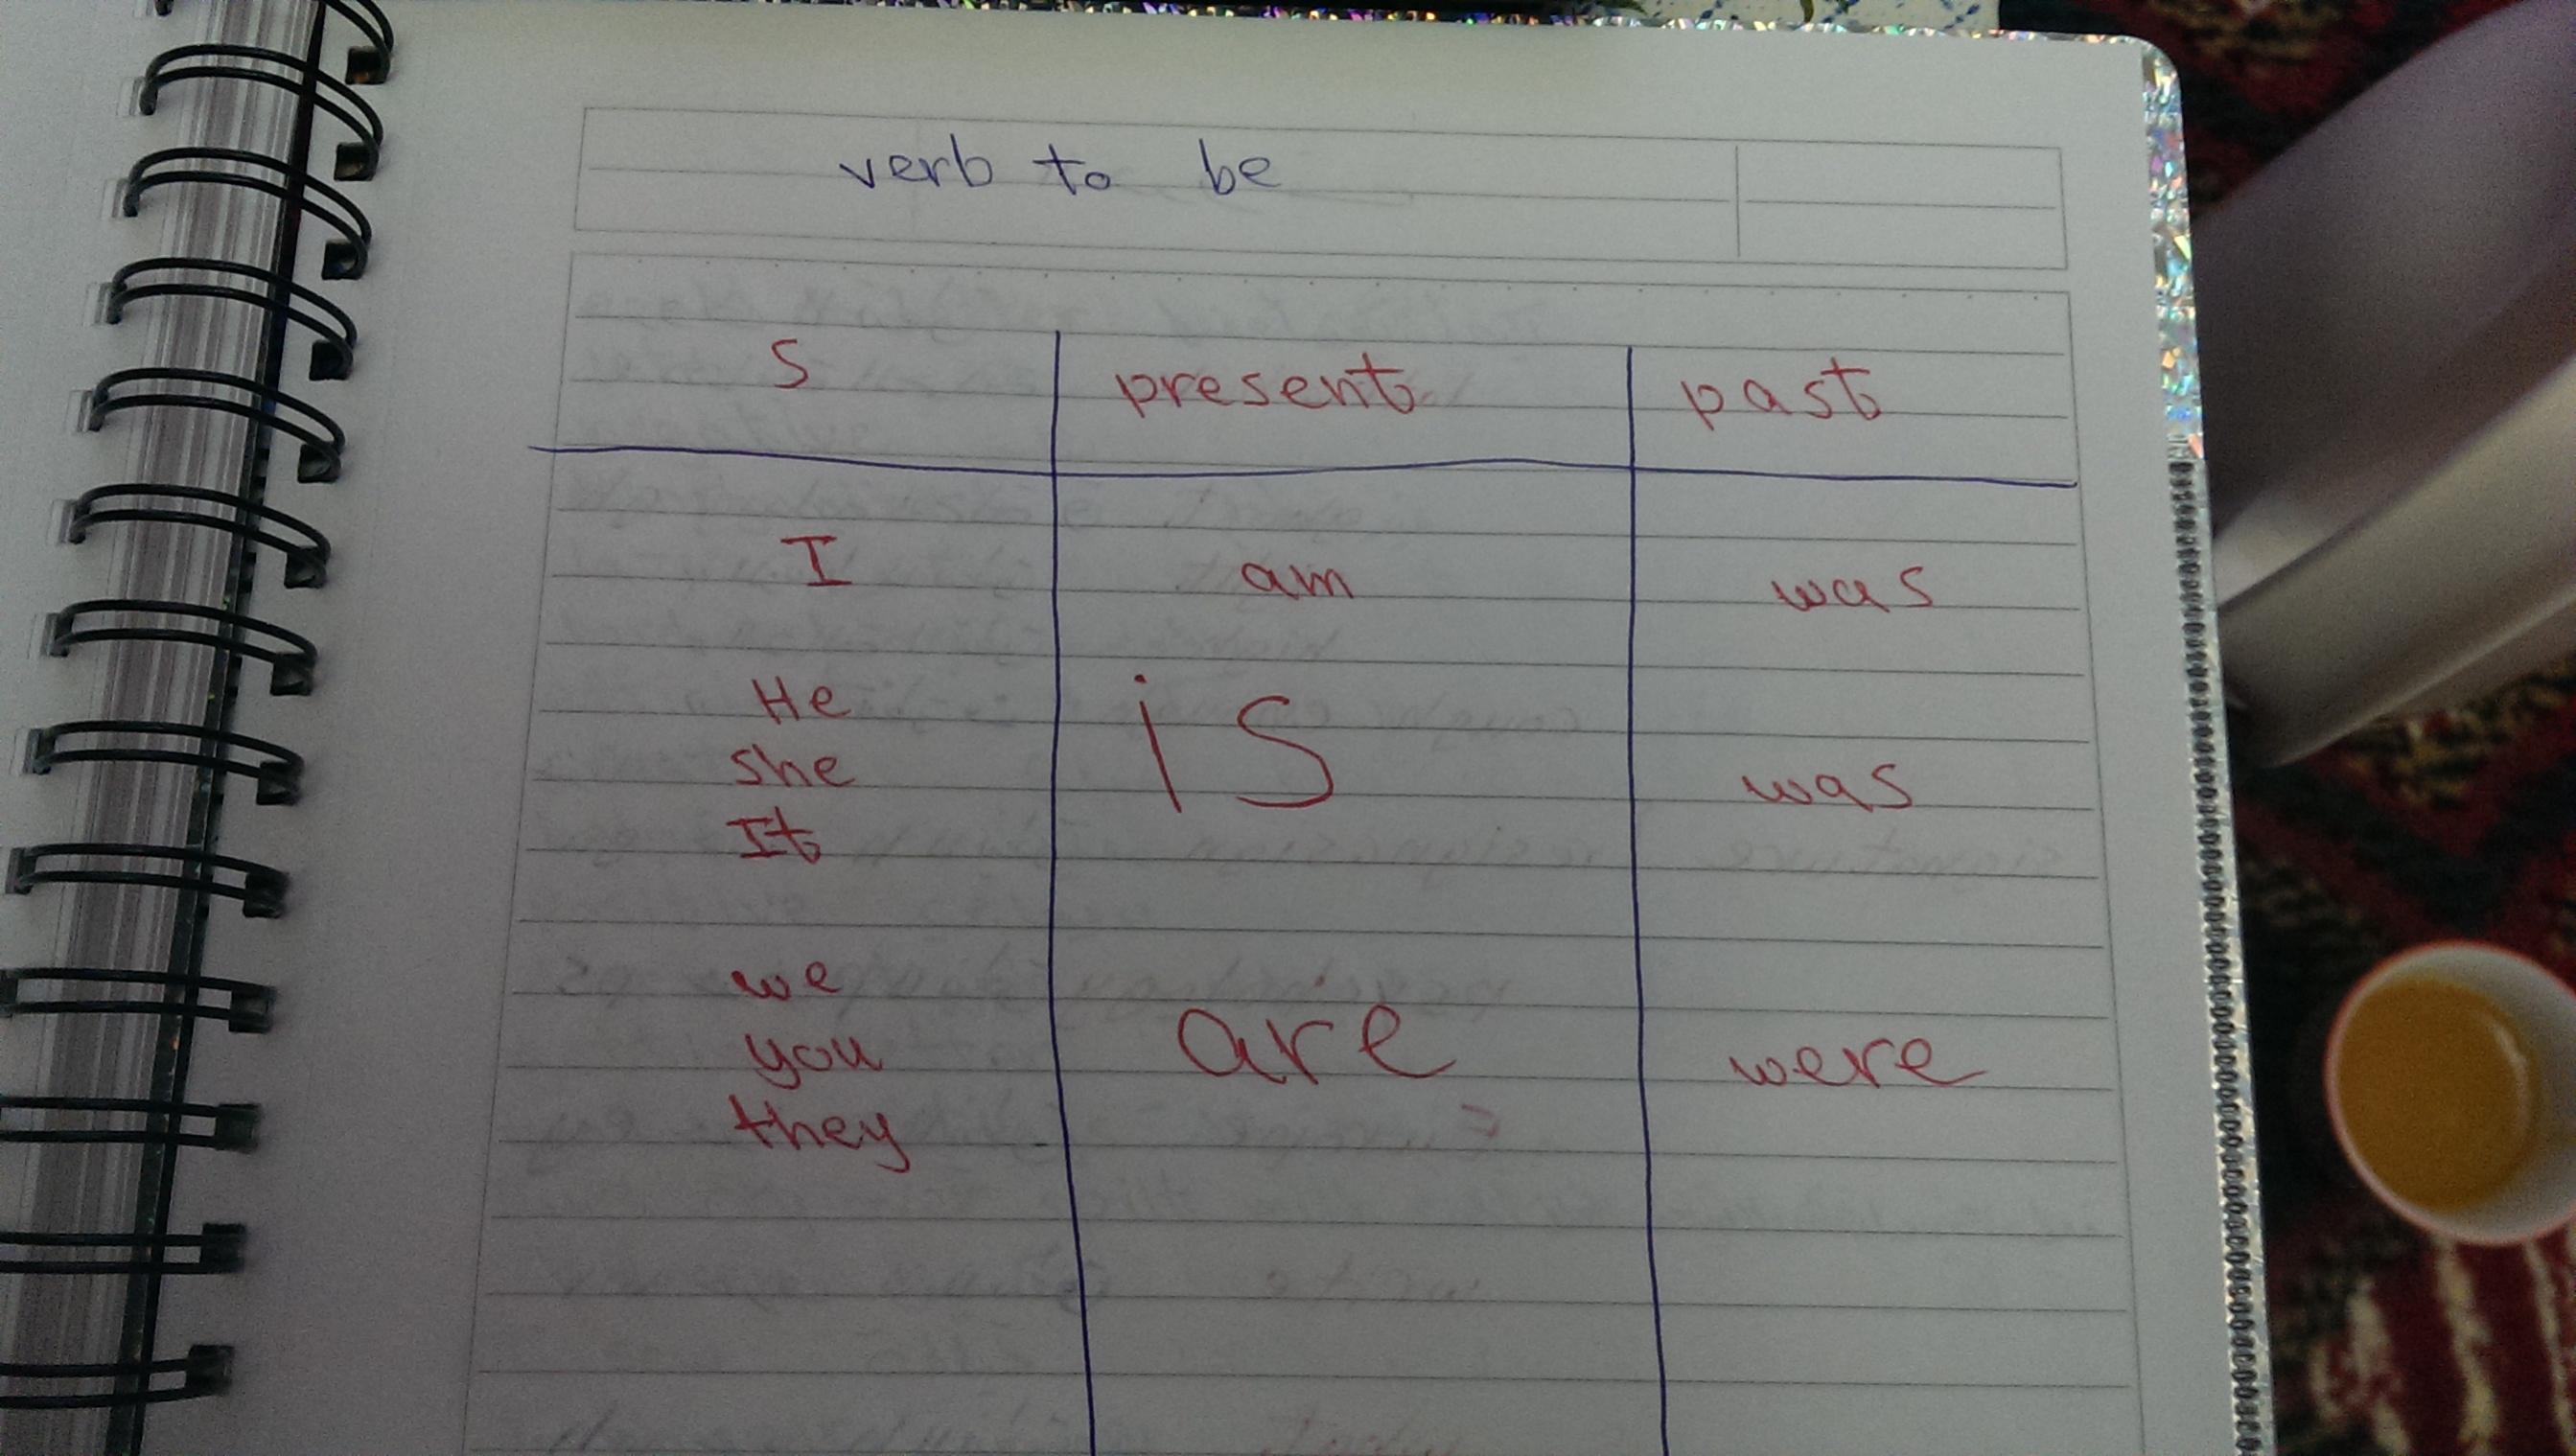 verb to be
S present past
I am was
He
she is was
It
we
you are were
they